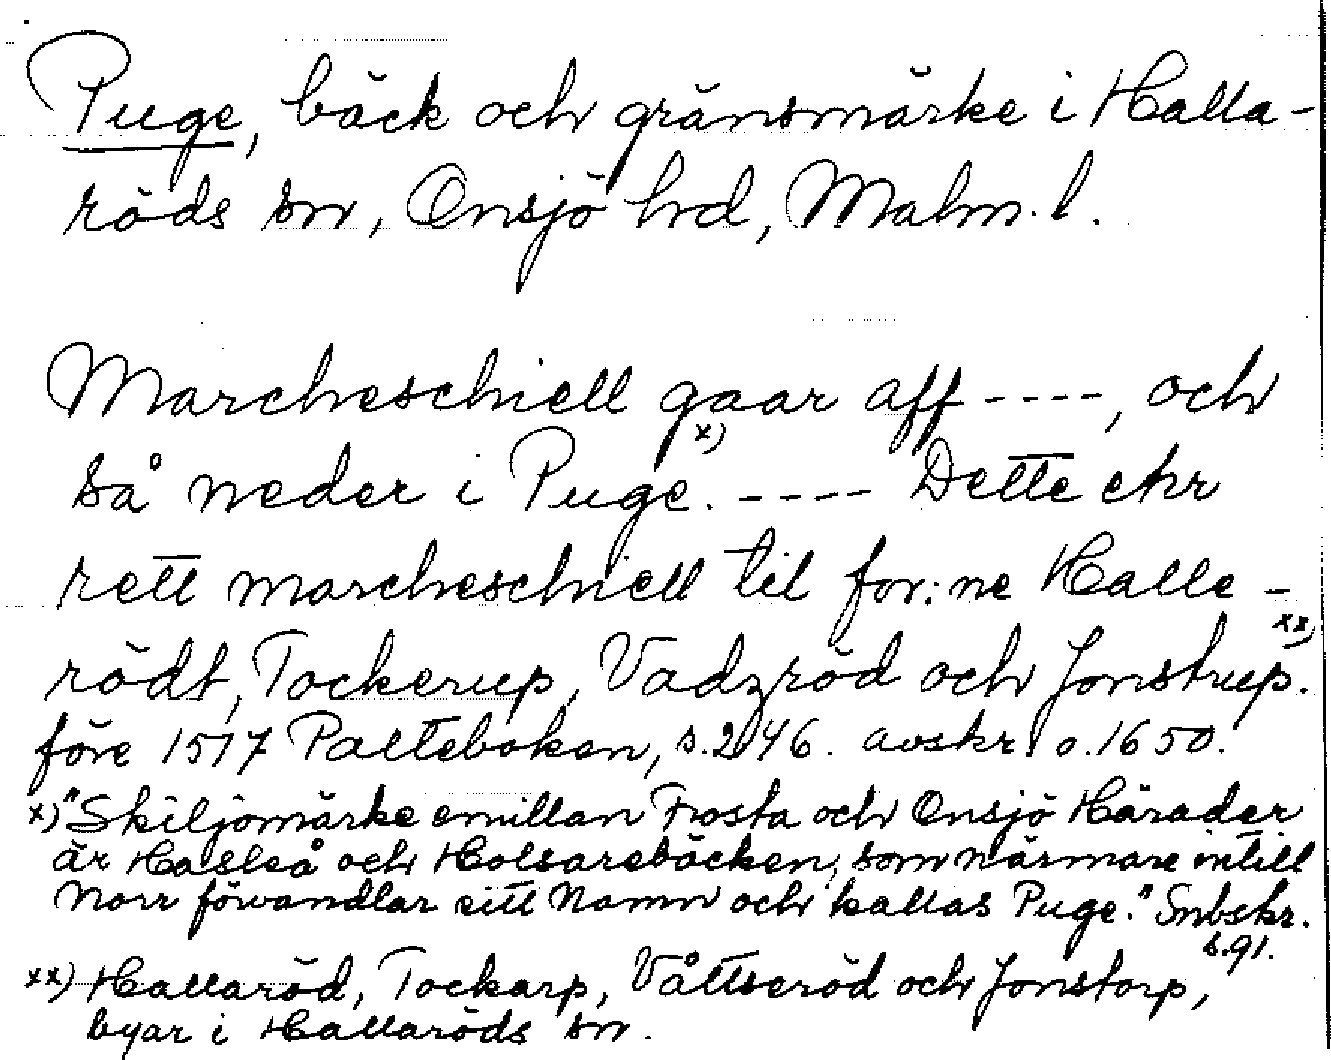 Puge, bäck och gränsmärke i Halla-
röds sn, Onsjö hd, Malm. l.
Marcheschiell gaar aff ----, och
så neder i Puge.x) ---- Dette ehr
rett marcheschiell til for:ne Halle-
rödt, Tockerup, Vadzröd och Jonstrup.xx)
före 1517 Palteboken, s.246. avskr. o.1650.
x) "Skiljomärke emillan Frosta och Onsjö Härader
är Hasleå och Holsarebäcken, som närmare intill
Norr förvandlar sitt Namn och kallas Puge." Snbskr.
s.91.
xx) Hallaröd, Tockarp, Våttseröd och Jonstorp,
byar i Hallaröds sn.